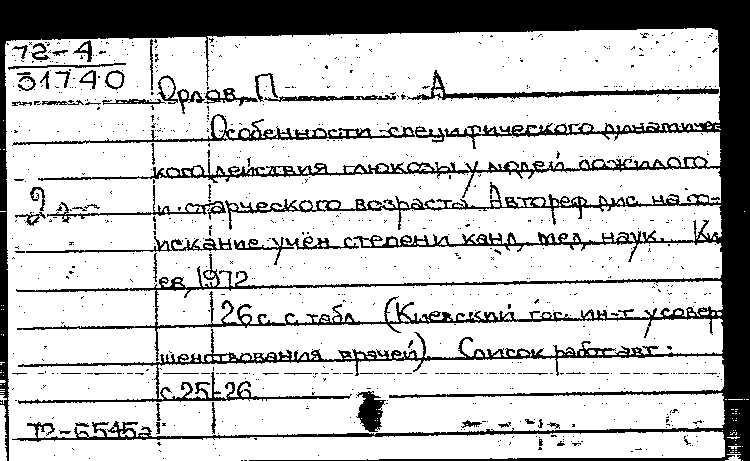 72-4-
31740
Орлов, П А
Особенности специфического динамичес
кого действия глюкозы у людей пожилого
и старческого возраста. Автореф дис. на со-
искание учён степени канд. мед. наук. Ки
ев, 1972
26 с. с табл (Киевский гос. ин-т усовер-
шенствования врачей). Список работ авт:
с. 25-26.
72-6545а